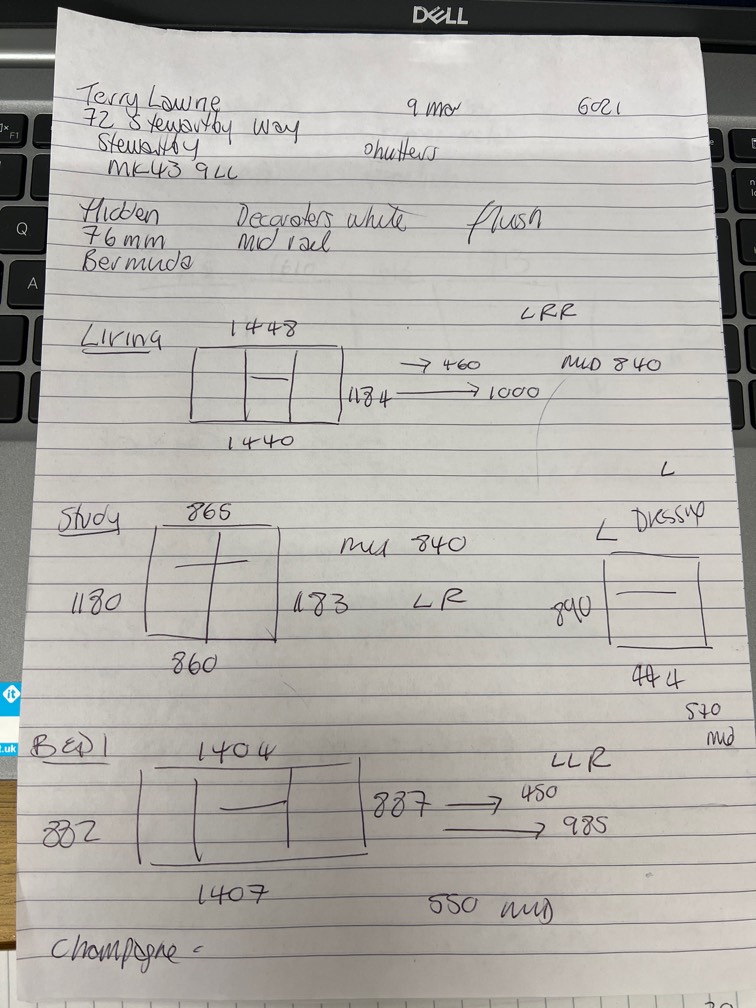 DELL
Terry Lawne 9 mar 6021
72 Stewartby Way
Stewartby shutters
MK43 9LL
Hidden Decorators white flush
76mm Mid rail
Bermuda
LRR
Living 1448
→ 460 MID 840
1184 → 1000
1440
L
Study 865 L Dressup
mid 840
1180 1183 LR 890
860 444
570
mid
BED 1 1404 LLR
887 → 450
882 → 985
1407 550 MID
Champagne =
Q
A
F1
it
.uk